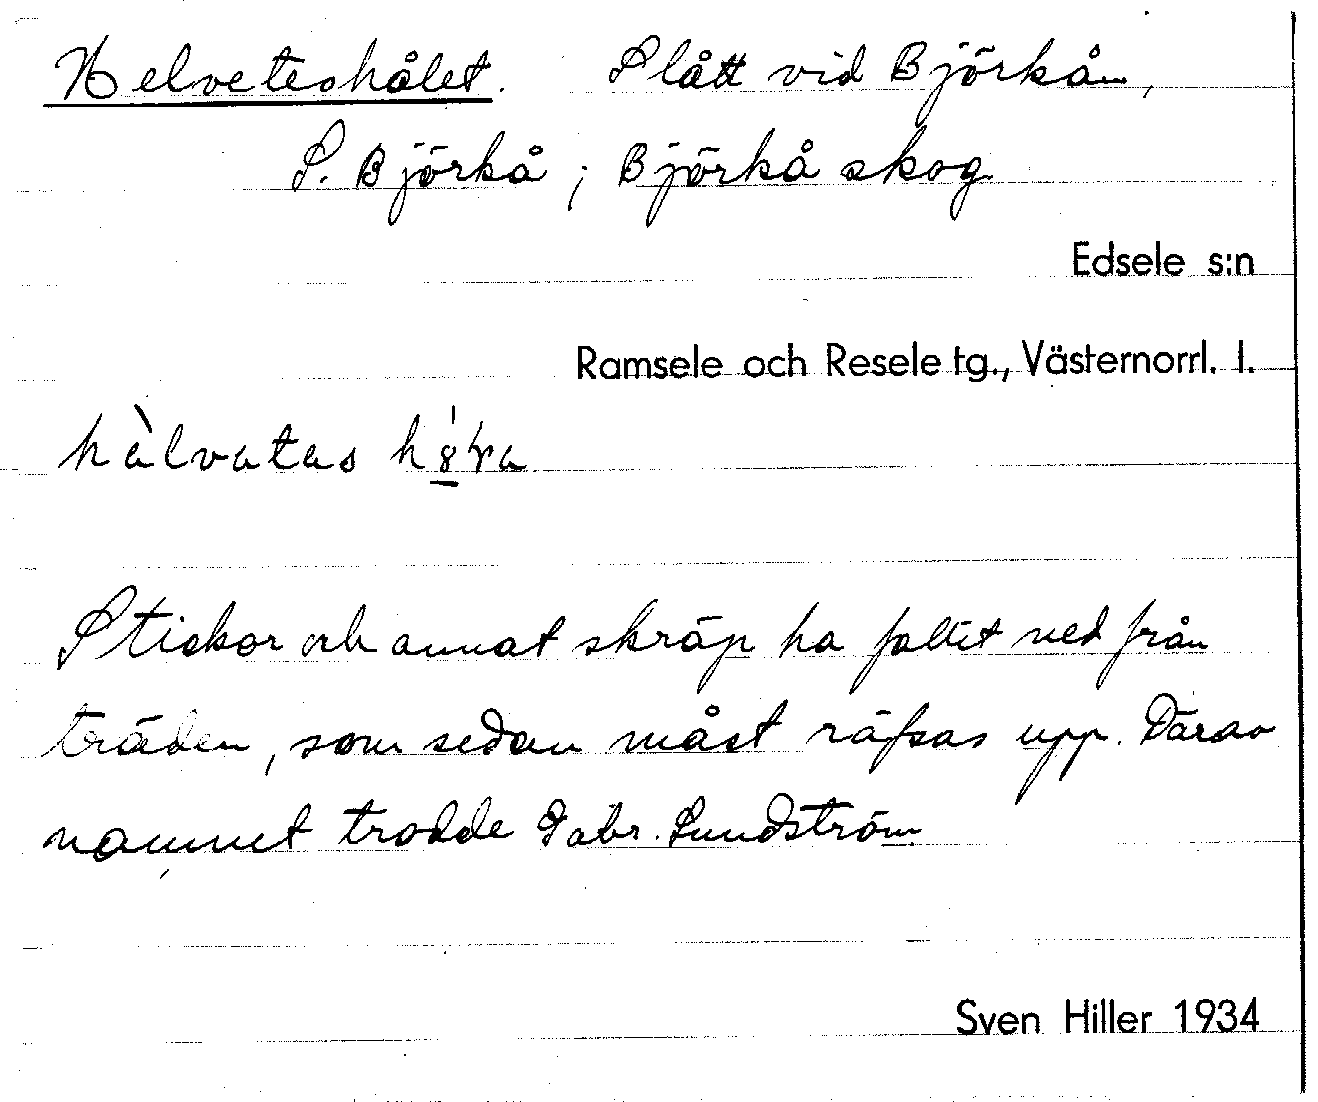 Helveteshålet. Slått vid Björkån,
S. Björkå; Björkå skog
Edsele s:n
Ramsele och Resele tg., Västernorrl. l.
hàlvatas
Stickor och annat skräp ha fallit ned från
träden, som sedan måst räfsas upp. Därav
namnet trodde Gabr. Sundström
Sven Hiller 1934